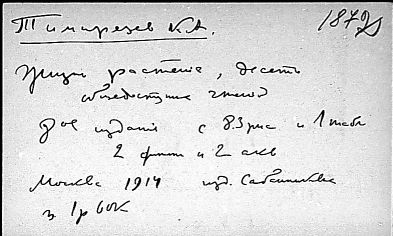 Тимирязев К.А. 1872
Жизнь растения, десять
общедоступных чтений
8ое издание с 83 рис и 1 табл
2 фотт и 2 акв
Москва 1914 изд. Сабашникова
ц. 1р 60к